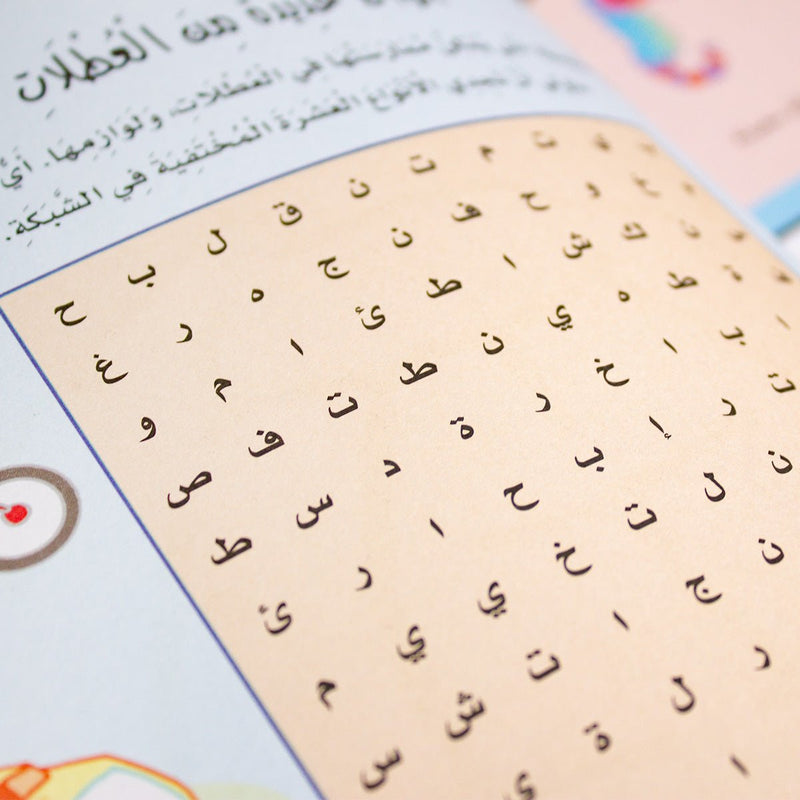 مِنَ الْعُطْلَاتِ
مُمَارَسَتُهَا فِي الْعُطْلَاتِ، وَلَوَازِمِهَا. أَيُّ
أَنْ تَجِدِي الْأَنْوَاعَ الْعَشَرَةَ الْمُخْتَفِيَةَ فِي الشَّبَكَةِ.
ت م ت ن ق ل ب ح
ح ف ن ج ه ر غ
ك ش ا ط ئ ا م و
ط ه ي ن ط ت ف ص
ب ا خ ر ة د س ط
ت ر إ ب ح ا ر ئ
ن ل ت خ ي ي م
ن ج ا ت ش س
ر ل ة ي
ا